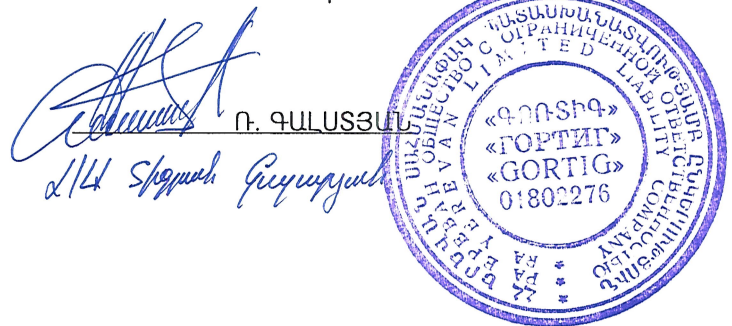 Ռ. ԳԱԼՍՏՅԱՆ
Լ/Ա Տիգրան
ԵՐԵՎԱՆ ՍԱՀՄԱՆԱՓԱԿ ՊԱՏԱՍԽԱՆԱՏՎՈՒԹՅԱՄԲ ԸՆԿԵՐՈՒԹՅՈՒՆ ՀՀ
ЕРЕВАН ОБЩЕСТВО С ОГРАНИЧЕННОЙ ОТВЕТСТВЕННОСТЬЮ РА
YEREVAN LIMITED LIABILITY COMPANY RA
«ԳՈՌՏԻԳ»
«ГОРТИГ»
«GORTIG»
01802276